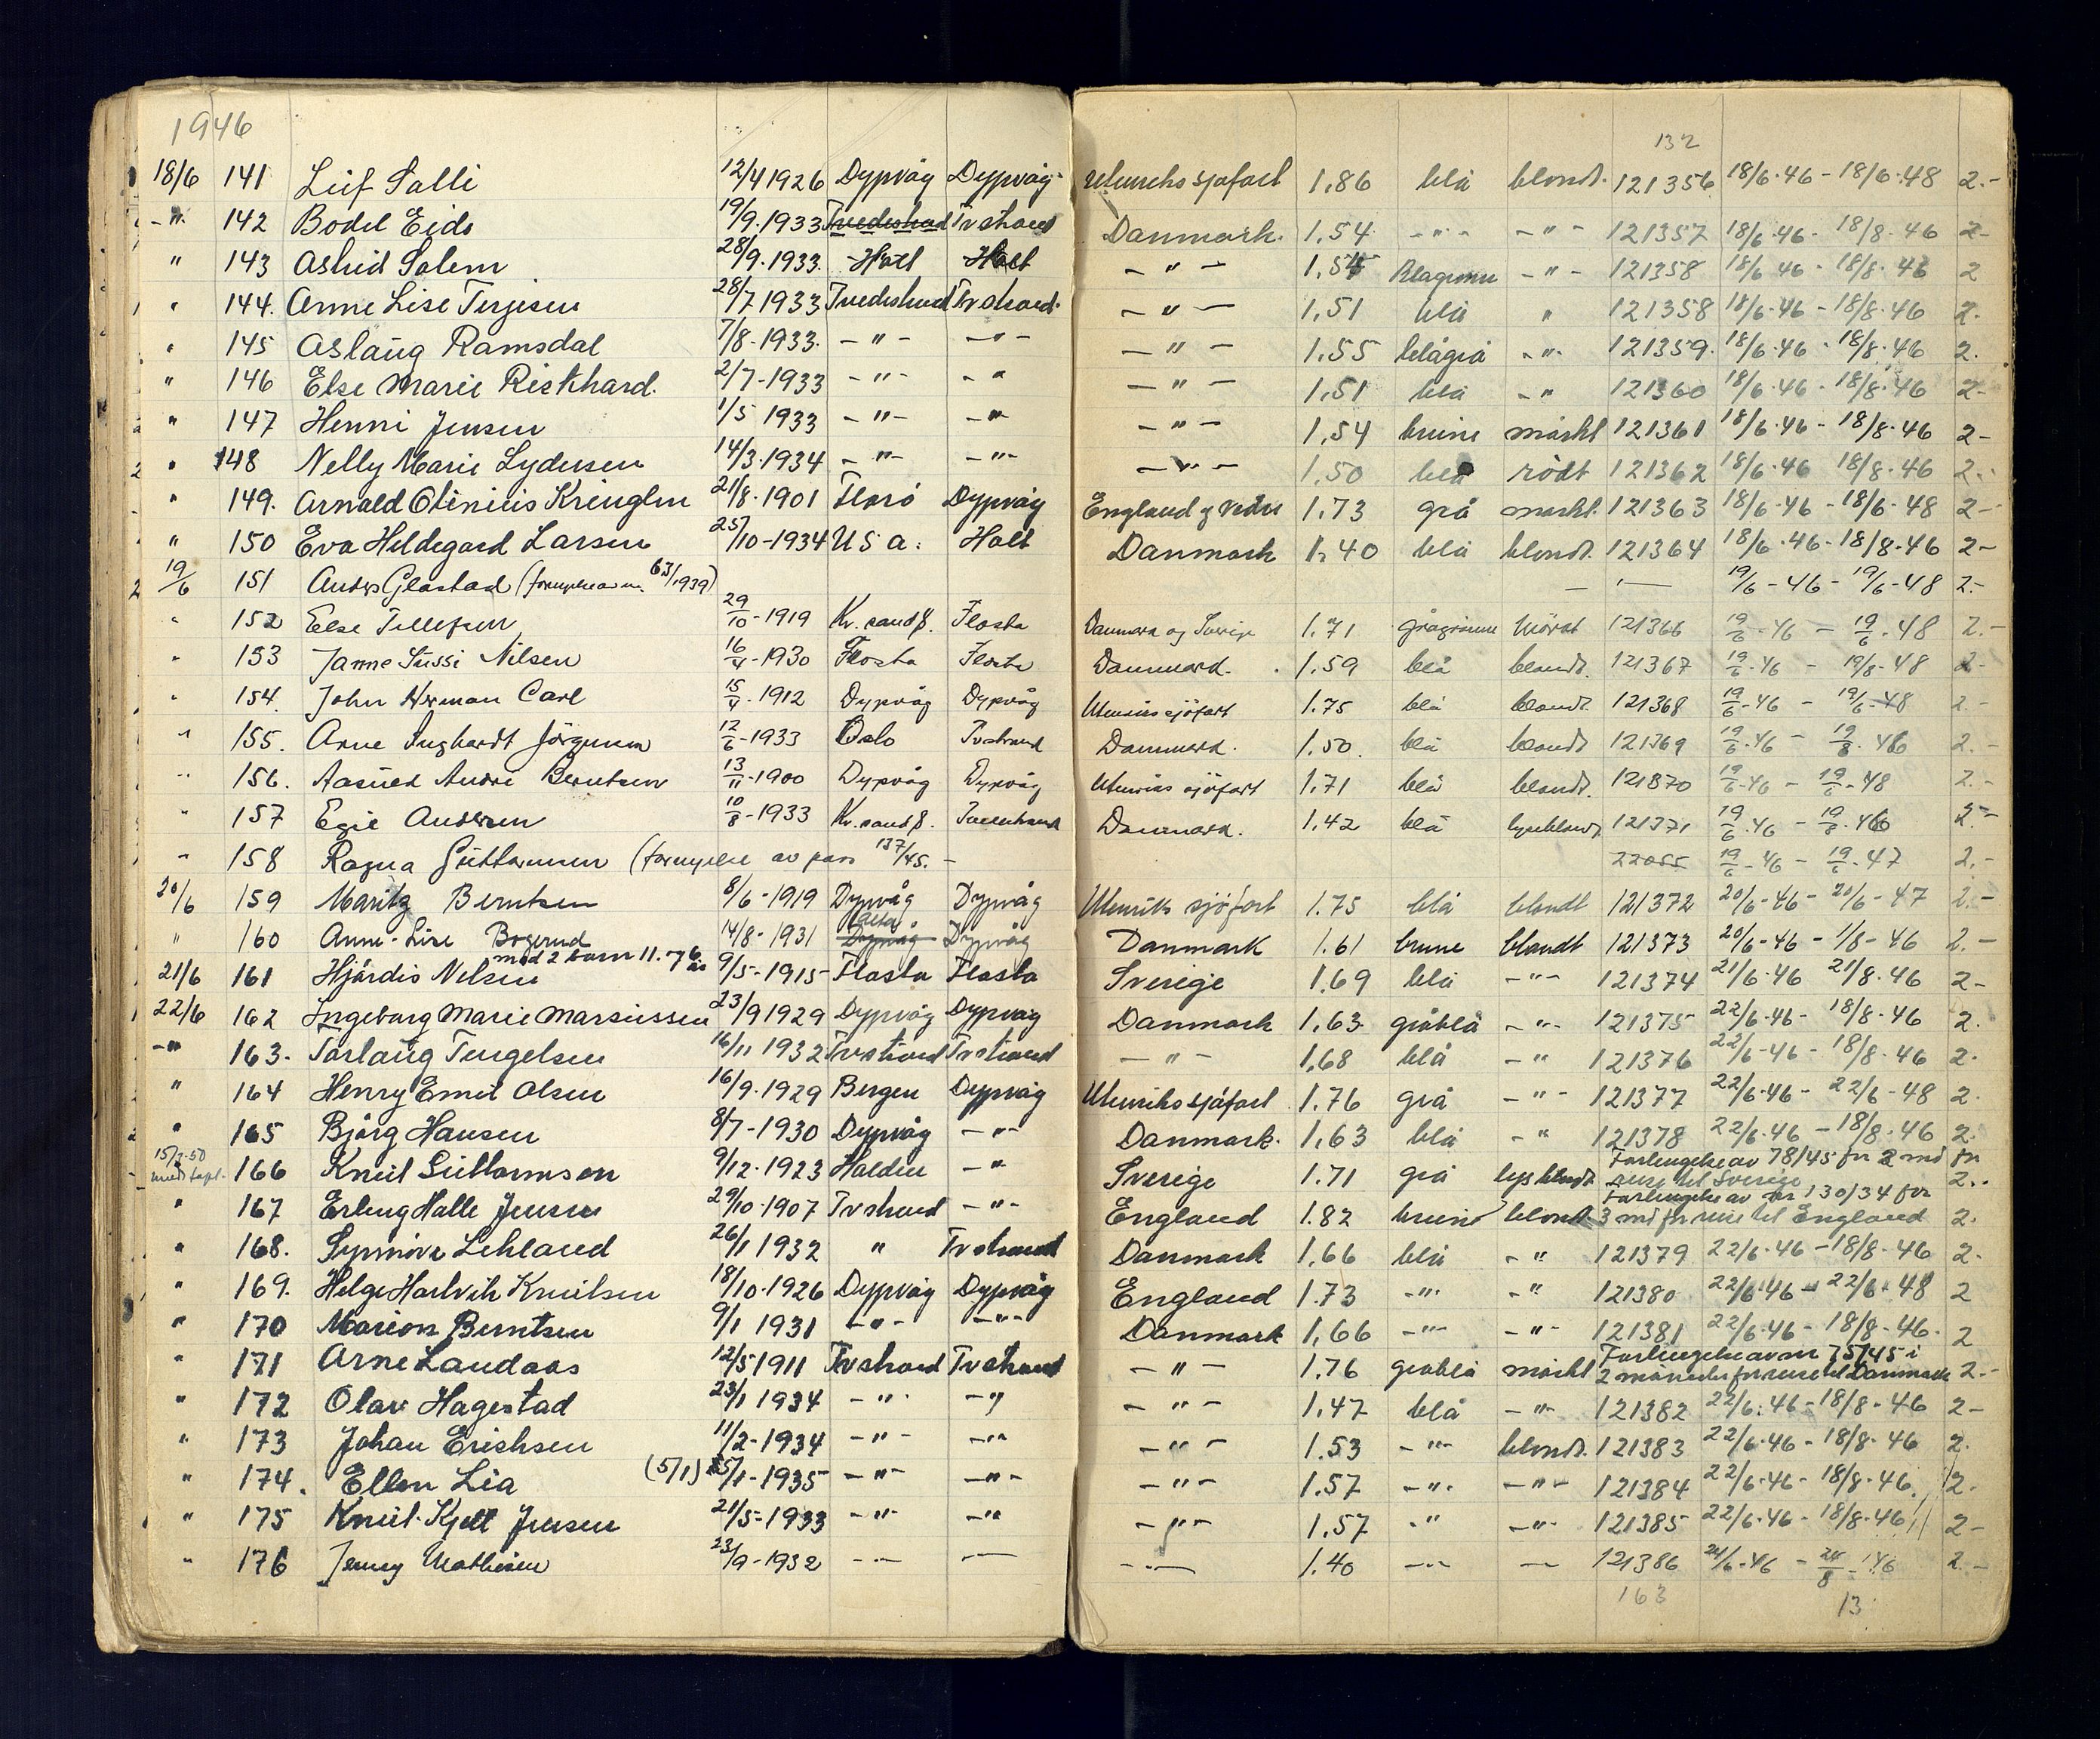 1946
132
18/6 141 Leif Salli 12/4 1926 Dypvåg Dypvåg Utenriks sjøfart 1,86 blå blondt. 121356 18/6-46 - 18/6-48 2.-
-"- 142 Bodil Eide 19/9-1933 Tvedestrand Tvstrand Danmark. 1.54 -"- -"- 121357 18/6-46 - 18/8-46 2-
" 143 Astrid Solem 28/9-1933. Holt Holt -"- 1,54 Blågrønn -"- 121358 18/6-46 - 18/8-46 2
" 144. Anne Lise Terjesen 28/7 1933 Tvedestrand Tvstrand. -"- 1,51 blå " 121358 18/6-46 - 18/8-46 2.
" 145 Aslaug Ramsdal 7/8-1933. -"- -"- -"- 1.55 blågrå -"- 121359. 18/6-46 - 18/8-46 2.
" 146 Else Marie 2/7-1933 -"- -"- -"- 1,51 blå -" 121360 18/6-46 - 18/8-46 2-
" 147 Henni Jensen 1/5 1933 -"- -"- -"- 1,54 brune mørkt 121361 18/6-46 - 18/8-46 2-
" 148 Nelly Marie Lydersen 14/3-1934 -"- -"- -"- 1,50 blå rødt 121362 18/6-46 18/8-46 2-
" 149. Arnold Olinius Kringlen 21/8-1901 Florø Dypvåg England 1.73 grå mørkt. 121363 18/6-46 - 18/6-48 2-
" 150 Eva Hildegard Larsen 25/10-1934 U S a. Holt Danmark 1,40 blå blondt. 121364 18/6-46 - 18/8-46 2-
19/6 151 Anders Glastad (fornyelse av nr. 63/1939) 19/6-46 - 19/6-48 2.-
" 152 Else Tellefsen 29/10-1919 Kr.sand S. Flosta Danmark og Sverige 1.71 grågrønne Mörkt 121366 19/6-46 - 19/6-48 2.-
" 153 Janne Sussi Nilsen 16/4-1930 Flosta Flosta Danmark. 1.59 blå blondt. 121367 19/6-46 - 19/8-48 2-
" 154. John Herman Carl 15/4-1912 Dypvåg Dypvåg Utenriks sjöfart 1.75 blå blondt. 121368 19/6-46 - 19/6-48 2.-
" 155. Arne Inghardt Jörgensen 12/6-1933 Oslo Tvstrand Danmark. 1.50. blå blondt 121369 19/6-46 - 19/8-46 2.-
" 156. Andre Berntsen 13/11-1900 Dypvåg Dypvåg Utenriks sjöfart 1.71 blå blondt. 121370 19/6-46 - 19/6-48 2.-
" 157 Egil Andersen 10/8-1933 Kr.sand S. Tvedestrand Danmark. 1.42 blå lyseblondt 121371 19/6-46 - 19/8-46 2.-
" 158 Ragna Guttormsen (fornyelse av pass 137/45. - 22055 19/6-46 - 19/6-47 2.-
20/6 159 Maritz Berntsen 8/6-1919 Dypvåg Dypvåg Utenriks sjöfart 1.75 blå blondt 121372 20/6-46 - 20/6-47 2.-
" 160 Anne-Lise Bogerud 14/8-1931 Dypvåg Dypvåg Danmark 1.61 brune blondt 121373 20/6-46 - 1/8-46 2.-
med 2 barn 11. 7 6 år
21/6 161 Hjördis Nelsen 9/5-1915 Flosta Flosta Sverige 1.69 blå -"- 121374 21/6-46 21/8-46 2-
22/6 162 Ingeborg Marie Marcussen 23/9 1929 Dypvåg Dypvåg Danmark 1,63. gråblå -"- 121375 22/6-46 - 18/8-46 2.
-"- 163. Torlaug Tengelsen 16/11 1932 Tvstrand Tvstrand -"- 1,68 blå -" 121376 22/6-46 - 18/8-46 2.
" 164 Henry Emil Olsen 16/9-1929 Bergen Dypvåg Utenriks sjøfart 1.76 grå -"- 121377 22/6-46 - 22/6-48 2.
" 165 Bjørg Hansen 8/7-1930 Dypvåg -"- Danmark. 1,63 blå -" 121378 22/6-46 - 18/8-46 2.
15/7-50 166 Knut Guttormsen 9/12-1923 Halden -" Sverige 1.71 grå lys blondt Forlengelse av 78/45 for 2 md for reise til Sverige 2..
" 167 Erling Halle Jensen 29/10-1907 Tvstrand -"- England 1.82 brune blondt Forlengelse av nr 130/34 for 3 md for reise til England 2.
" 168. Synnøve Lehland 26/1 1932 " Tvstrand Danmark 1.66 blå -" 121379 22/6-46 - 18/8-46 2.
" 169. Helge Hartvik Knutsen 18/10-1926 Dypvåg Dypvåg England 1.73 -"- -" 121380 22/6-46 - 22/6-48 2
" 170 Marion Berntsen 9/1 1931 -"- -"- Danmark 1,66 -"- -"- 121381 22/6-46 - 18/8-46. 2
" 171 Arne Landaas 12/5 1911 Tvstrand Tvstrand -"- 1.76 gråblå mørkt Forlengelse av nr 75/45 i 2 måneder for reise til Danmark 2.-
" 172 Olav Hagestad 23/1 1934 -"- -" -"- 1.47 blå -"- 121382 22/6-46 - 18/8-46 2-
" 173 Johan Erichsen 11/2-1934 -"- -"- -"- 1.53 -"- blondt. 121383 22/6-46 - 18/8-46 2.
" 174. Ellen Lia (5/1) 15/1-1935 -"- -"- -"- 1.57 -"- -"- 121384 22/6-46 - 18/8-46. 2.
" 175 Knut Kjell Jensen 21/5-1933 -"- -"- -"- 1.57 -" -"- 121385 22/6-46 - 18/8-46 2-
" 176 Jenny Mathisen 23/9-1932 -"- -"- -"- 1.40 -"- -"- 121386 24/6-46 - 24/8-46 2.-
163 13